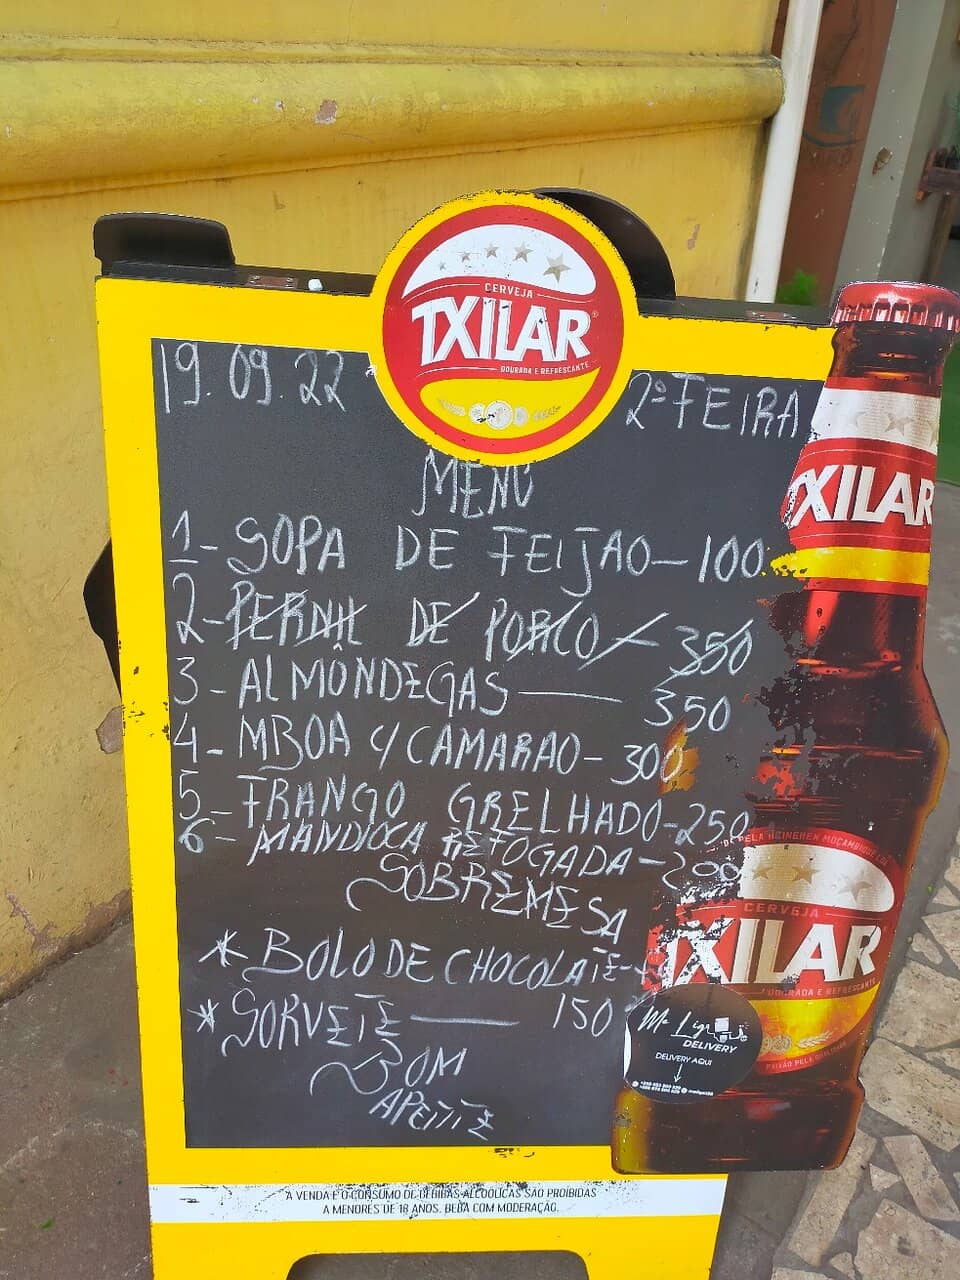 CERVEJA
TXILAR
DOURADA E REFRESCANTE
19.09.22
2ª FEIRA
MENÚ
1- SOPA DE FEIJAO - 100
2- PERNIL DE PORCO - 350
3- ALMÔNDEGAS - 350
4- MBOA C/ CAMARAO - 300
5- FRANGO GRELHADO - 250
6- MANDIOCA REFOGADA - 200
SOBREMESA
* BOLO DE CHOCOLATE -
* SORVETE - 150
BOM
APETITE
TXILAR
PELA HEINEKEN MOÇAMBIQUE
CERVEJA
TXILAR
DOURADA E REFRESCANTE
DELIVERY
DELIVERY AQUI
A VENDA E O CONSUMO DE BEBIDAS ALCOÓLICAS SÃO PROIBIDAS
A MENORES DE 18 ANOS. BEBA COM MODERAÇÃO.